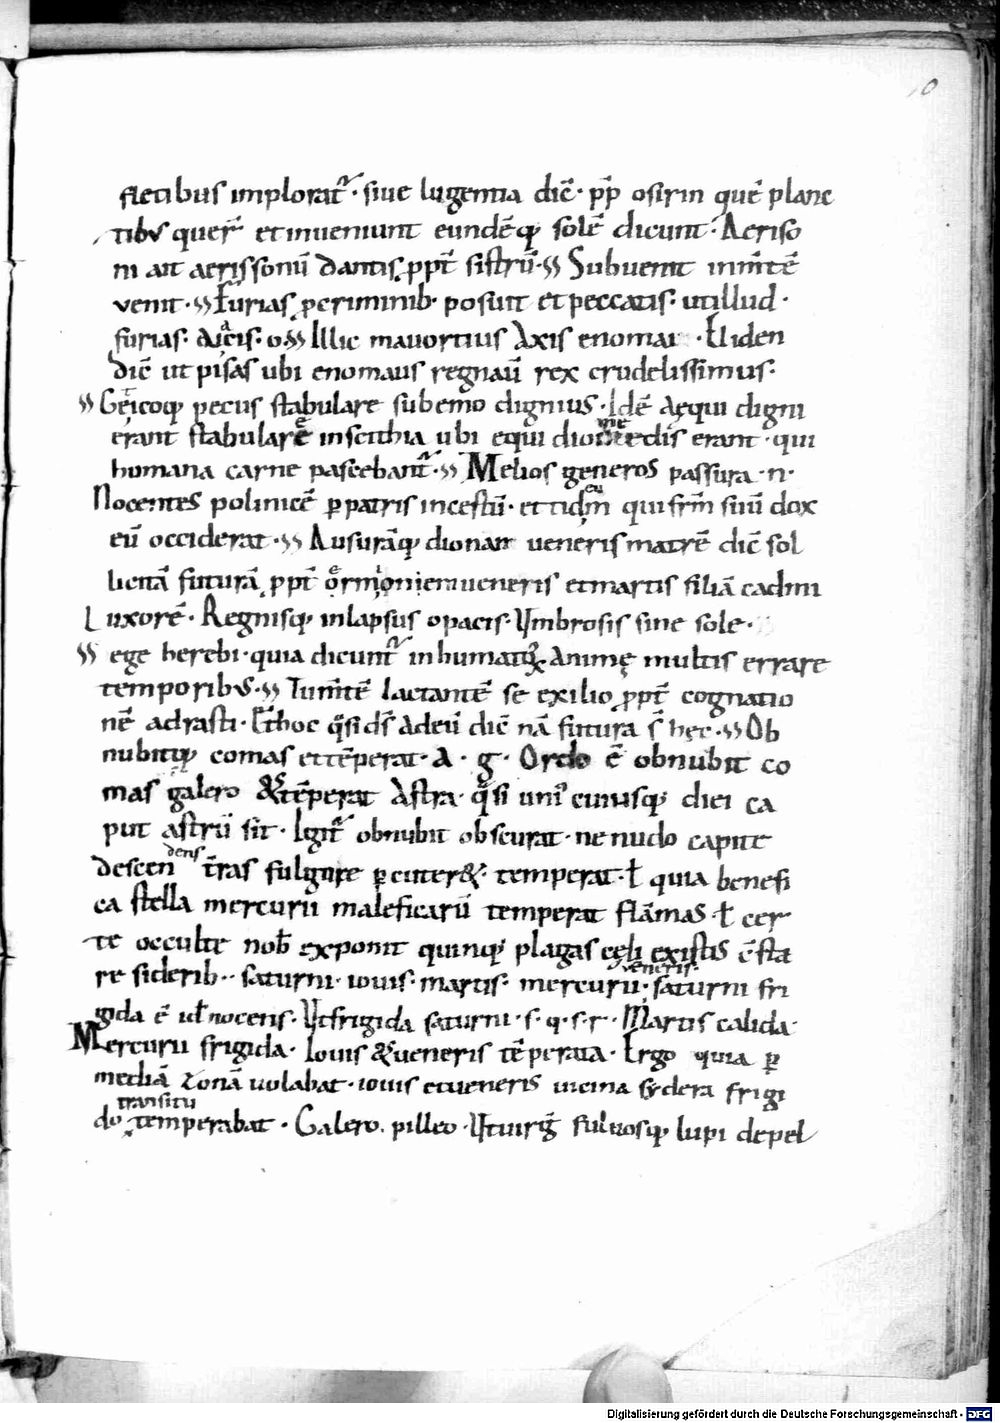 10
fletibus implorat͛ · siue lugentia dic̄ · pp̄ osirin quē planc
tibus quer̄ et inueniunt eundēq; solē dicunt · Aeriso
ni ait aerissonū dantis ꝓpt̄ sistrū · Subuenit inīntē
venit · Furias ꝓ criminib· posuit et peccatis · ut illud ·
furias · o Illic mauortius Axis enomai · Eliden
dic̄ ut pisas ubi enomaus regnaū rex crudelissimus ·
Geticoq; pecus stabulare sub emo dignius · Idē Aequi digni
erant stabulare in scithia ubi equi diomedis erant · qui
humana carne pascebant͛ · Melios generos passura · n ·
Nocentes polinicē ꝑ patris incestū · et tideū qui fr̄m suū dox
eū occiderat · Ausurāq; dionan ueneris matrē dic̄ sol
licitā futurā ꝓpt̄ ormoniem ueneris et martis filiā cadmi
Luxorē · Regnisq; inlapsus opacis · Umbrosis sine sole ·
ege herebi · quia dicunt͛ inhumatoꝝ animę multis errare
temporibus · Tum̄tē lactantē se exilio ꝓpt̄ cognatio
nē adrasti · Et hoc q̄si dr̄ adeū dic̄ nā futura s̄ hęc · Ob
nubitq; comas et tēperat · A · g · Ordo ē obnubit co
mas galero & tēperat Astra · q̄si uni cuiusq; diei ca
put astrū sit · Igit͛ obnubit obscurat · ne nudo capite
descendens t̄ras fulgure ꝑcuter& · temperat · ł quia benefi
ca stella mercurii maleficarū temperat flāmas ł cer
te occulte nob̄ exponit quinq; plagas cęli existis ē sta
re siderib· · saturni · iouis · martis · mercurii · ueneris · saturni fri
gida ē uł nocens · Ut frigida saturni · s · q · s · r · Martis calida
Mercurii frigida · Iouis & ueneris tēperata · Ergo quia ꝑ
mediā zonā uolabat · iouis et ueneris uicina sydera frigi
do transitu temperabat · Galero · pilleo · Ut uirḡ fuluosq; lupi de pel
Digitalisierung gefördert durch die Deutsche Forschungsgemeinschaft - DFG